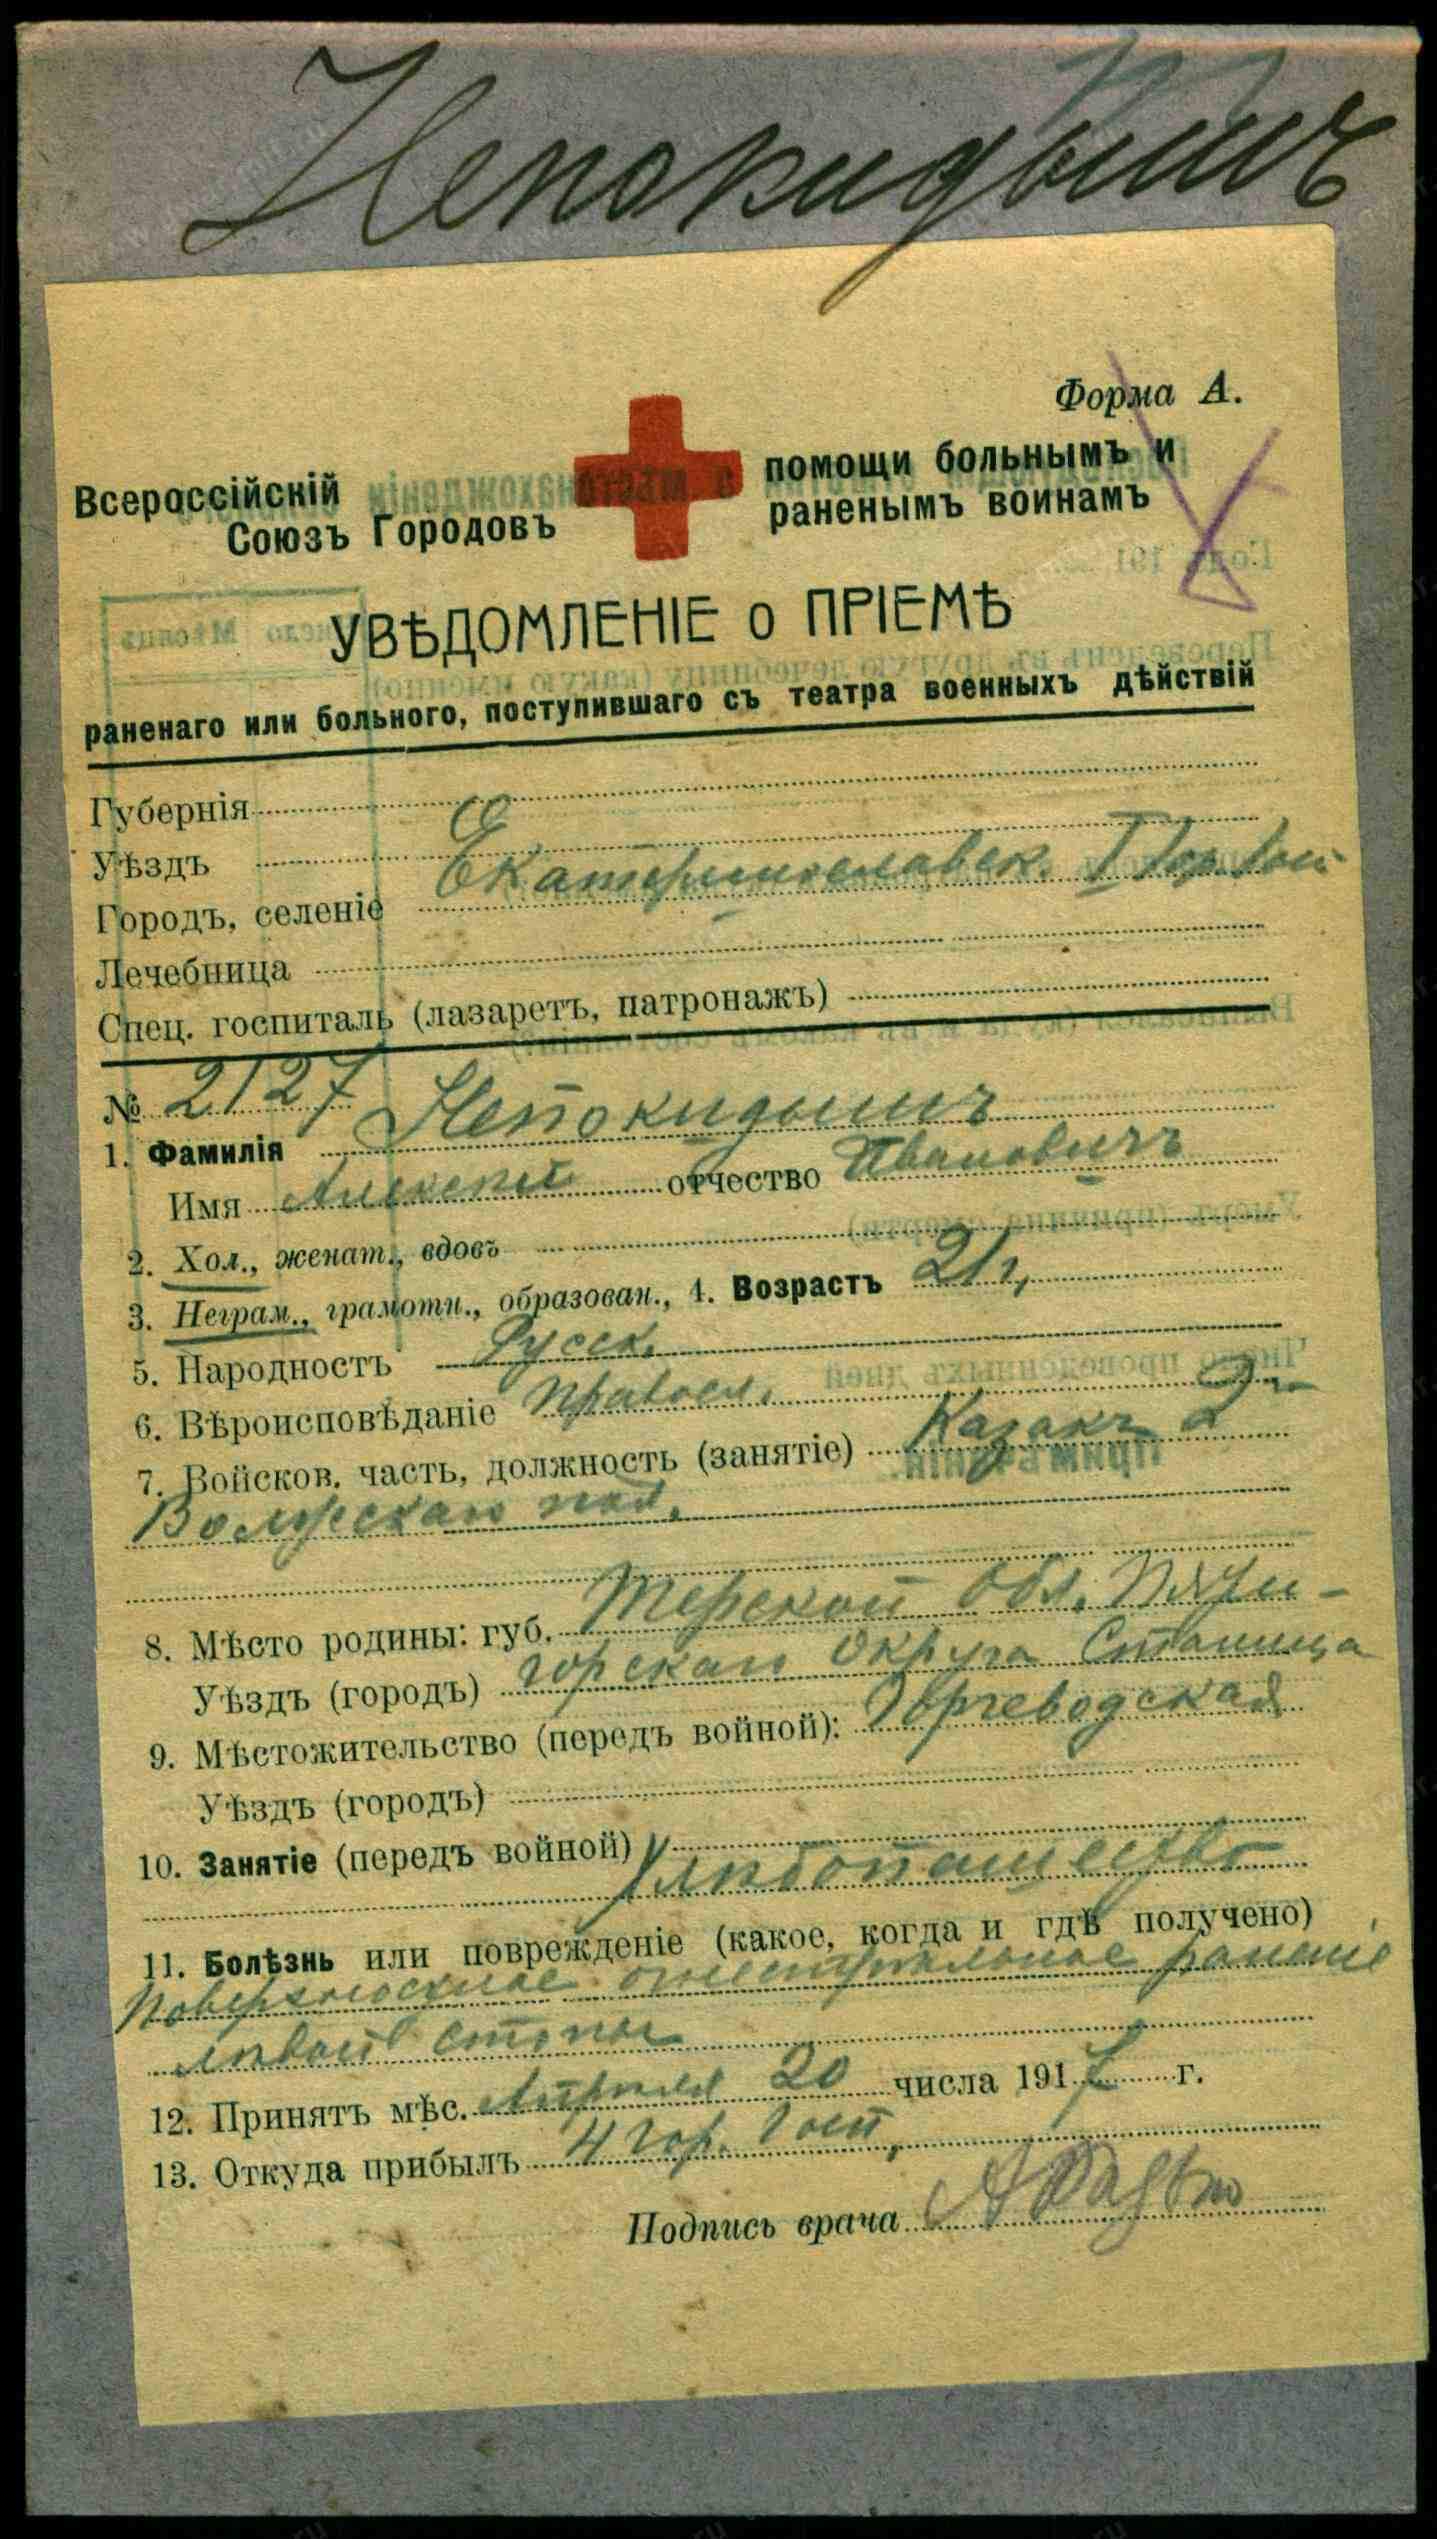 Непокидышъ
Форма А.
Всероссійскій
Союзъ Городовъ
помощи больнымъ и
раненымъ воинамъ
УВѢДОМЛЕНІЕ о ПРІЕМѢ
раненаго или больного, поступившаго съ театра военныхъ дѣйствій
Губернія
Уѣздъ
Городъ, селеніе Екатеринославск.
Лечебница
Спец. госпиталь (лазаретъ, патронажъ)
№ 2127
1. Фамилія Непокидышъ
Имя Алексей отчество Ивановичъ
2. Хол., женат., вдовъ
3. Неграм., грамотн., образован., 4. Возрастъ 21 г.
5. Народность Русск.
6. Вѣроисповѣданіе правосл.
7. Войсков. часть, должность (занятіе) Казакъ 2
Волжскаго пол.
8. Мѣсто родины: губ. Терской обл. Пяти-
Уѣздъ (городъ) горскаго округа Станица
9. Мѣстожительство (передъ войной): Горячеводская
Уѣздъ (городъ)
10. Занятіе (передъ войной)
Хлѣбопашество
11. Болѣзнь или поврежденіе (какое, когда и гдѣ получено)
Поверхностное огнестрѣльное раненіе
лѣвой стопы
12. Принятъ мѣс. Апрѣля 20 числа 1917 г.
13. Откуда прибылъ 4 гор. Госп.
Подпись врача